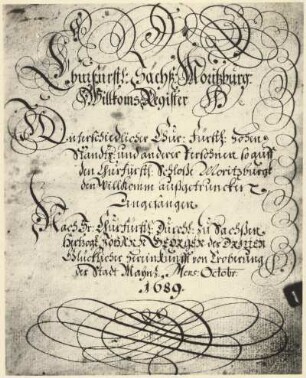 Churfürstl: Sächß: Moritzburg:
Willkoms Register
Unterschiedlicher Chur: Fürstl: hohen
Standts: und anderer Persohnen so auff
den Churfürstl: Schloße Moritzburg
den Willkomm außgetruncken
Eingefangen
Nach Sr: Churfürstl: Durchl: zu Sachßen
Herzogk Johann Georgen der Dritten
Glücklicher von Eroberung
der Stadt Mayntz. Mens: Octobr:
1689.